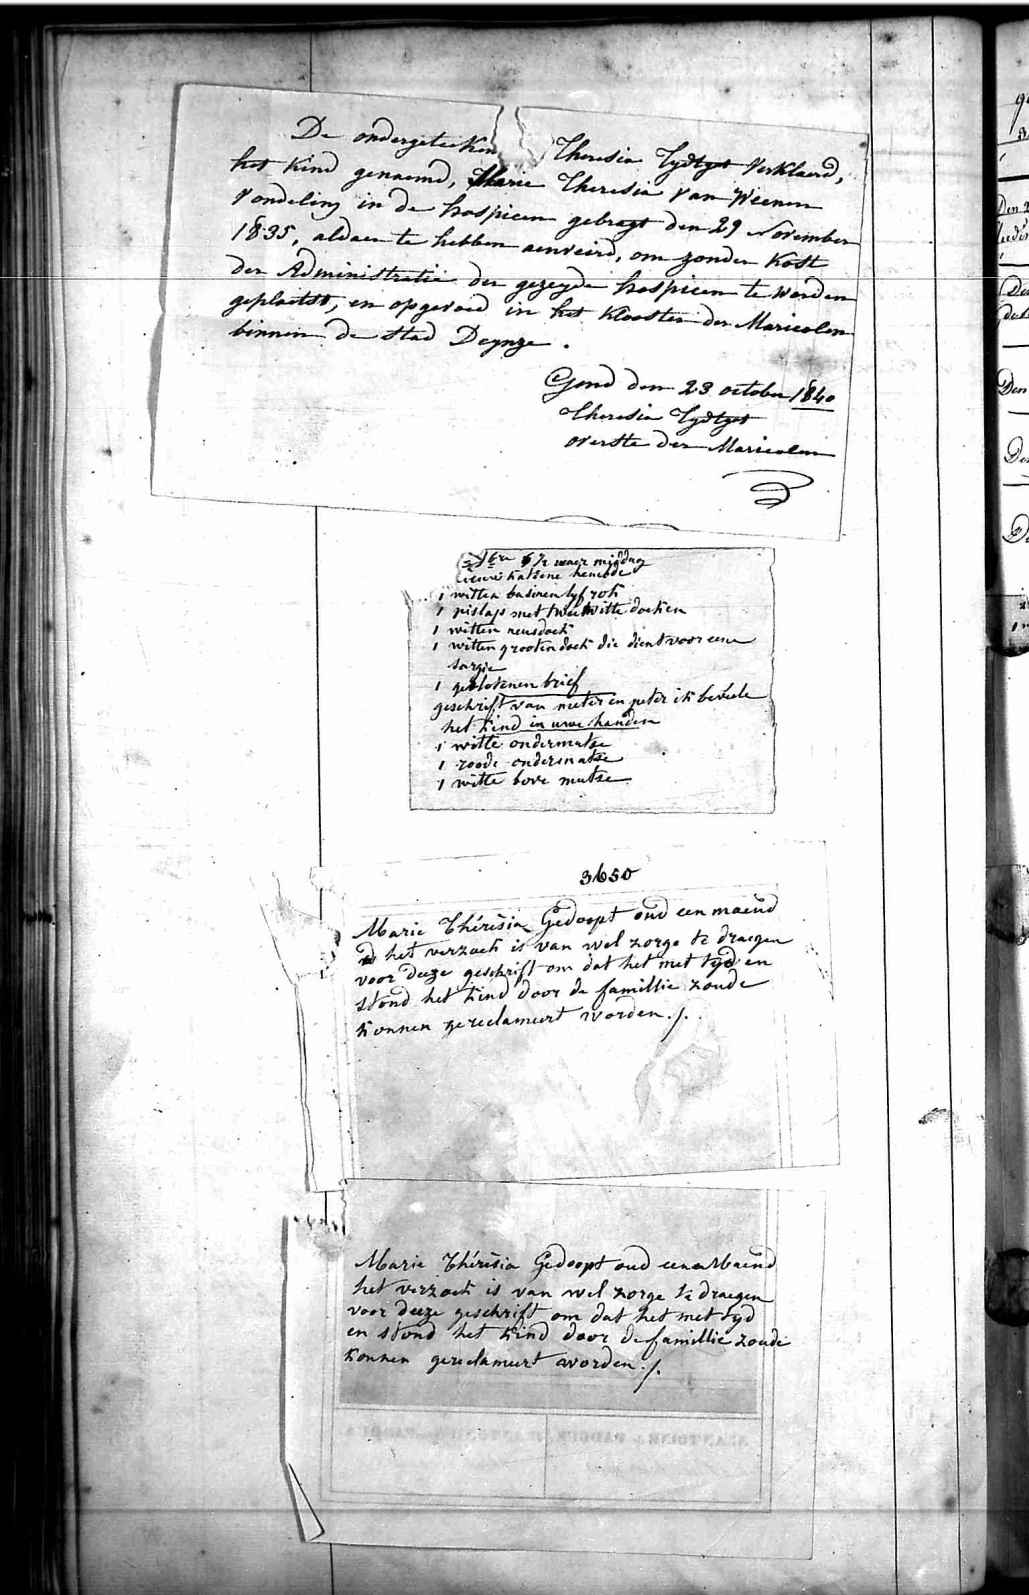 De ondergeteeken Theresia Tydtgat verklaerd,
het kind genaemd, Marie Theresia Van Weenen
vondeling in de hospicen gebragt den 29 November
1835, aldaer te hebben aenveird, om zonder kost
der Administratie der gezeyde hospicen te worden
geplaetst, en opgevoed in het klooster der Maricolen
binnen de stad Deynze.
Gend den 23 october 1840
Theresia Tydtgat
overste der Maricolen
6 1/2 uuer middag
katsene hemede
1 witten baseren lyf rok
1 pislap met twee witte doeken
1 witten neusdoek
1 witten grooten doek die dient voor eene
sargie
1 geslotenen brief
geschrift van meter en peter ik beveele
het kind in uwe handen
1 witte ondermutse
1 roode ondermutse
1 witte bove mutse
3650
Marie Thérèsia Gedoopt oud een maend
het verzoek is van wel zorge te draegen
voor deeze geschrift om dat het met tyd en
stond het kind door de famillie zoude
konnen gereclameert worden ./.
Marie Thérèsia Gedoopt oud eene Maend
het verzoek is van wel zorge te draegen
voor deeze geschrift om dat het met tyd
en stond het kind door de famillie zoude
konnen gereclameert worden ./.